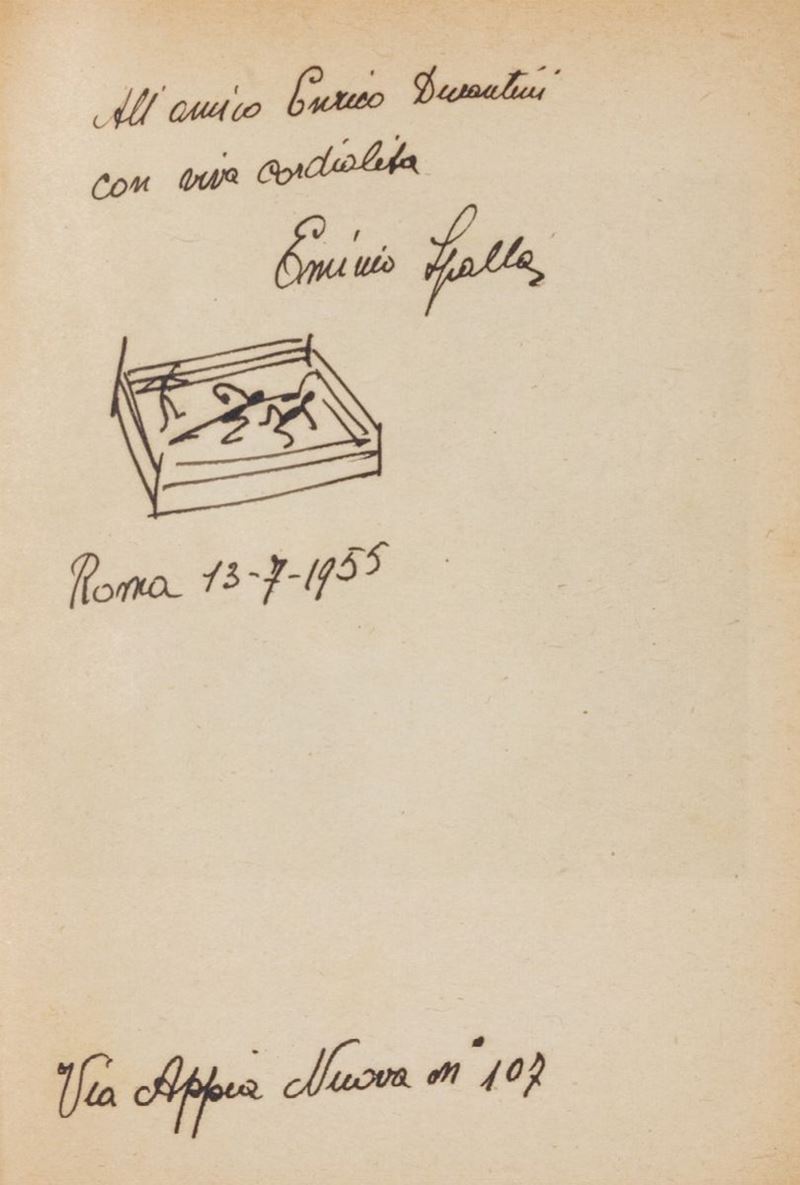 All'amico Enrico Durantini
con viva cordialità
Erminio Spalla
Roma 13-7-1955
Via Appia Nuova n° 107